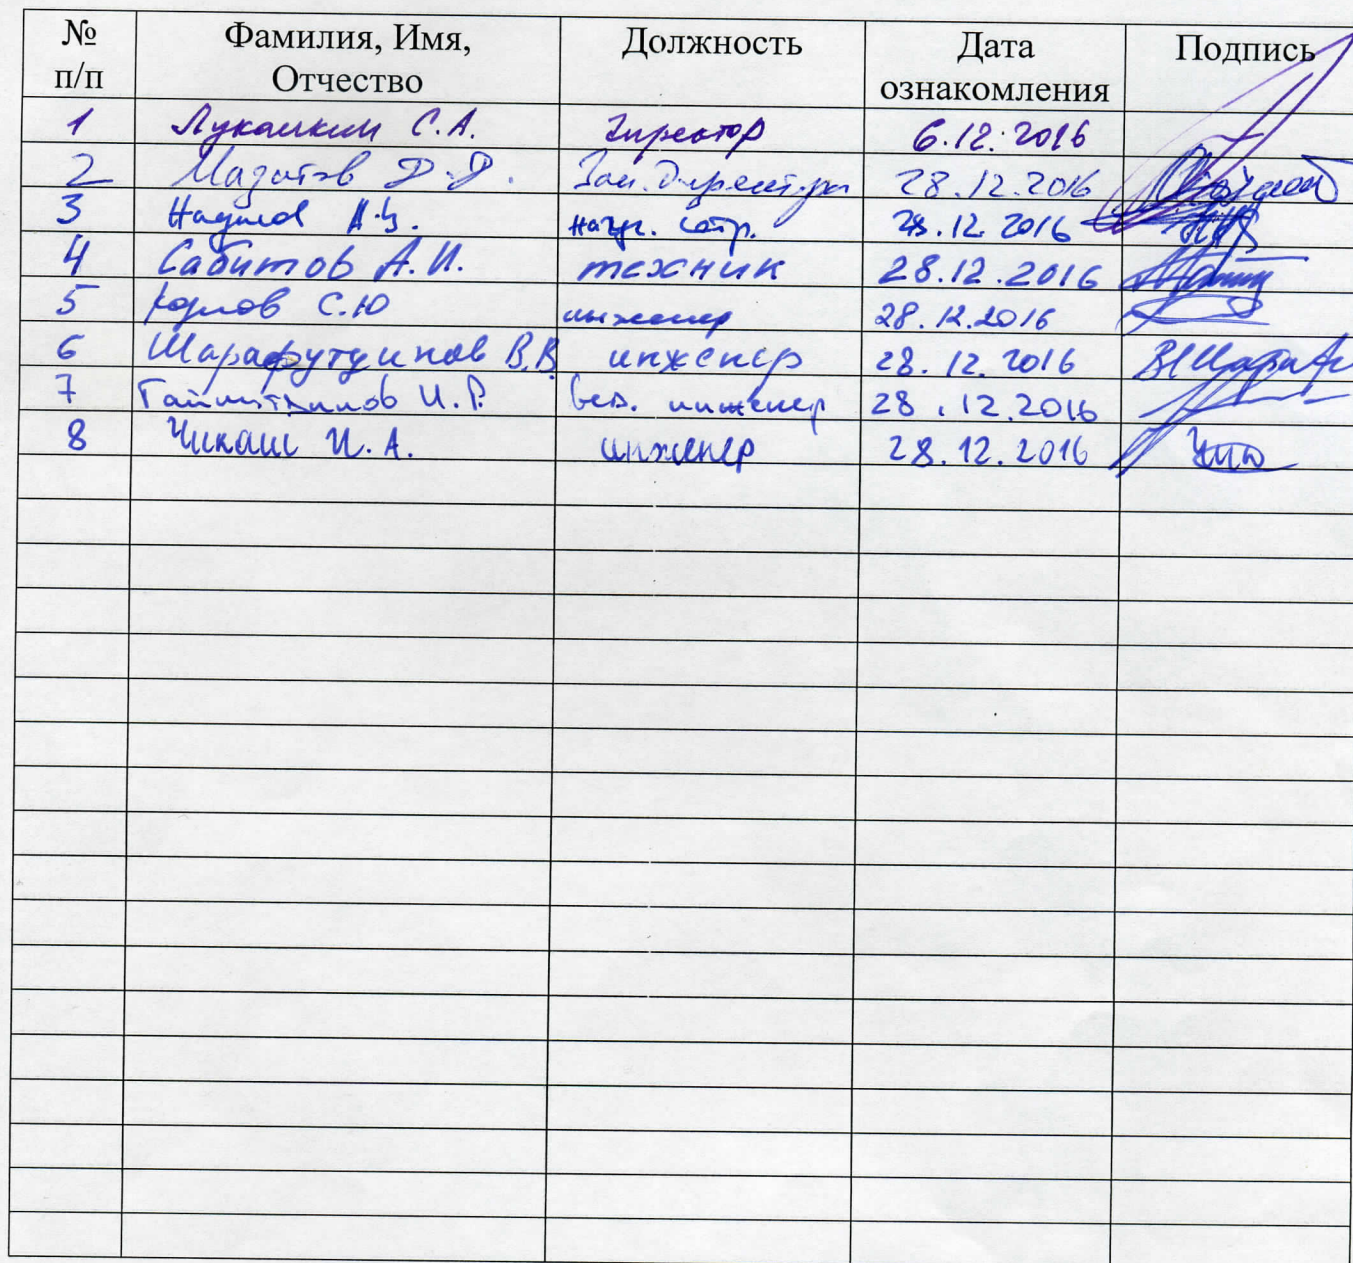 № п/п Фамилия, Имя, Отчество Должность Дата ознакомления Подпись
1 Лукашкин С.А. директор 6.12.2016
2 Д.Д. Зам. директора 28.12.2016
3 Наумов А.З. научн. сотр. 28.12.2016
4 Сабитов А.И. техник 28.12.2016
5 С.Ю инженер 28.12.2016
6 Шарафутдинов В.В. инженер 28.12.2016
7 И.Р. вед. инженер 28.12.2016
8 Чикаш И.А. инженер 28.12.2016